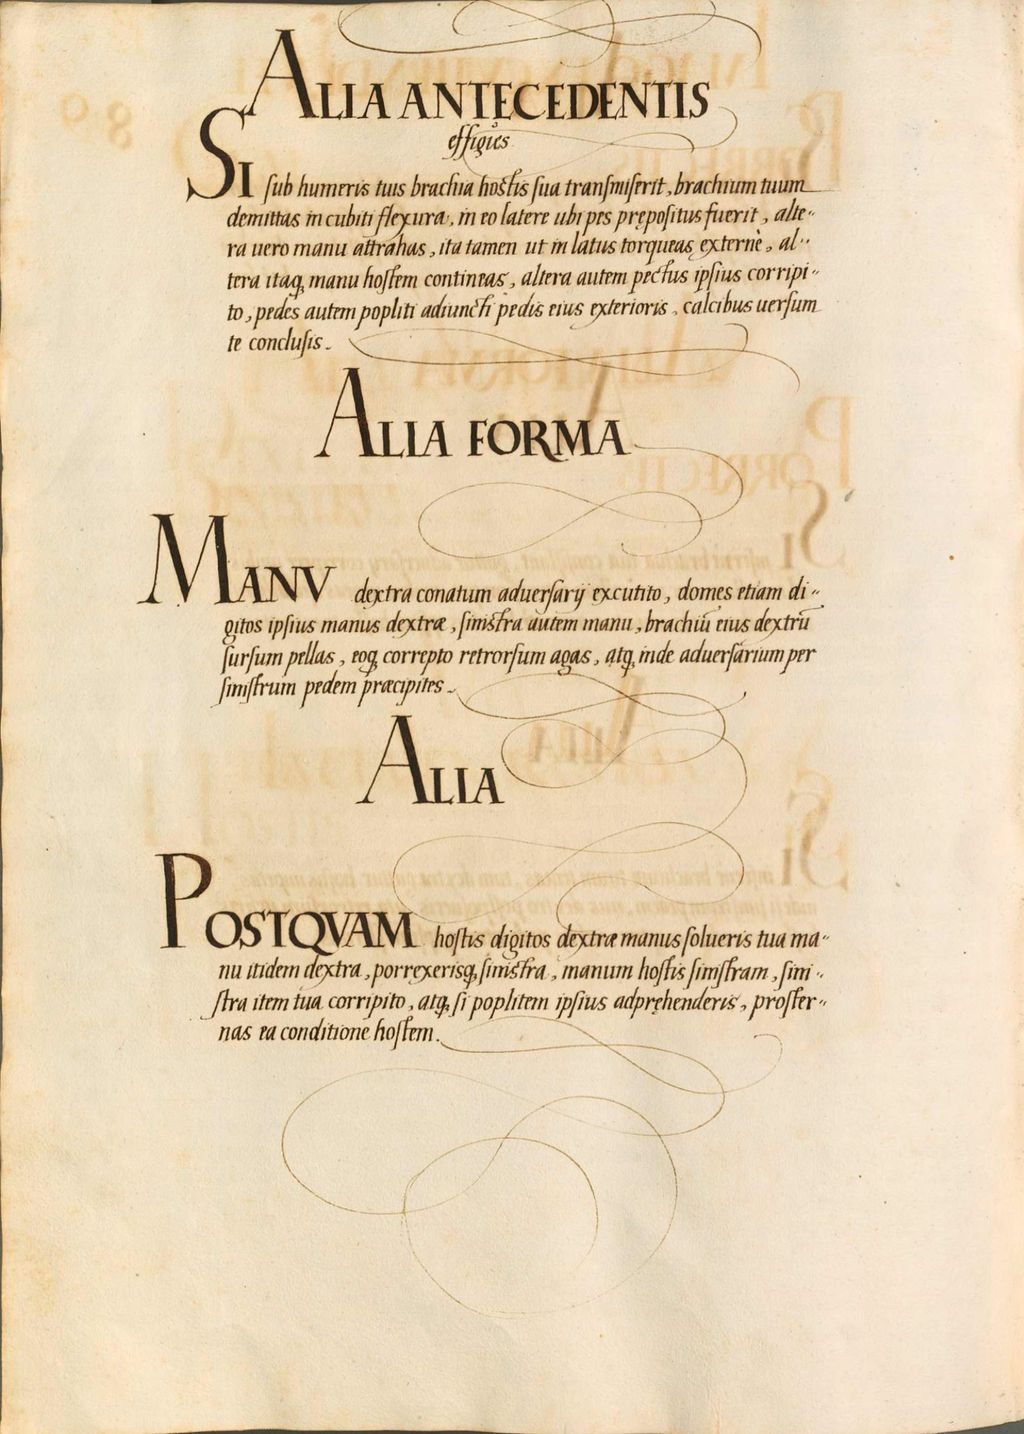 ALIA ANTECEDENTIS
effigies
SI sub humeris tuis brachia hostis sua transmiserit, brachium tuum
demittas in cubiti flexura, in eo latere ubi pes prepositus fuerit, alte-
ra uero manu attrahas, ita tamen ut in latus torqueas externè, al-
tera itaq, manu hostem contineas, altera autem pectus ipsius corripi-
to, pedes autem popliti adiuncti pedis eius exterioris, calcibus uersum
te conclusis.
ALIA FORMA
MANV dextra conatum aduersarij excutito, domes etiam di-
gitos ipsius manus dextræ, sinistra autem manu, brachiū eius dextrū
sursum pellas, eoq, correpto retrorsum agas, atq, inde aduersarium per
sinistrum pedem præcipites.
ALIA
POSTQVAM hostis digitos dextræ manus solueris tua ma-
nu itidem dextra, porrexerisq, sinistra, manum hostis sinistram, sini-
stra item tua corripito, atq, si poplitem ipsius adprehenderis, proster-
nas ea conditione hostem.